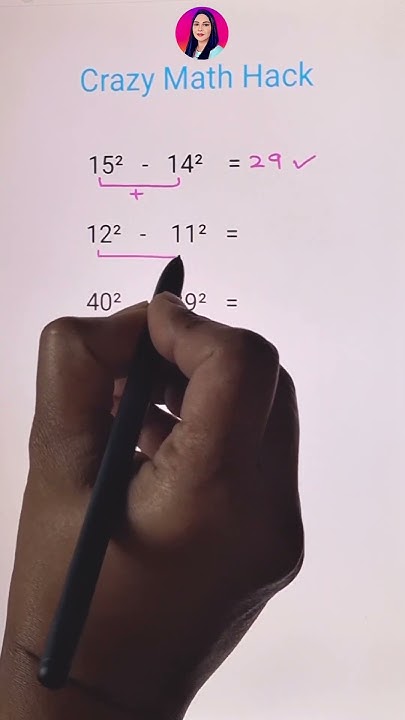 Crazy Math Hack
15² - 14² = 29 ✓
+
12² - 11² =
40² 9² =